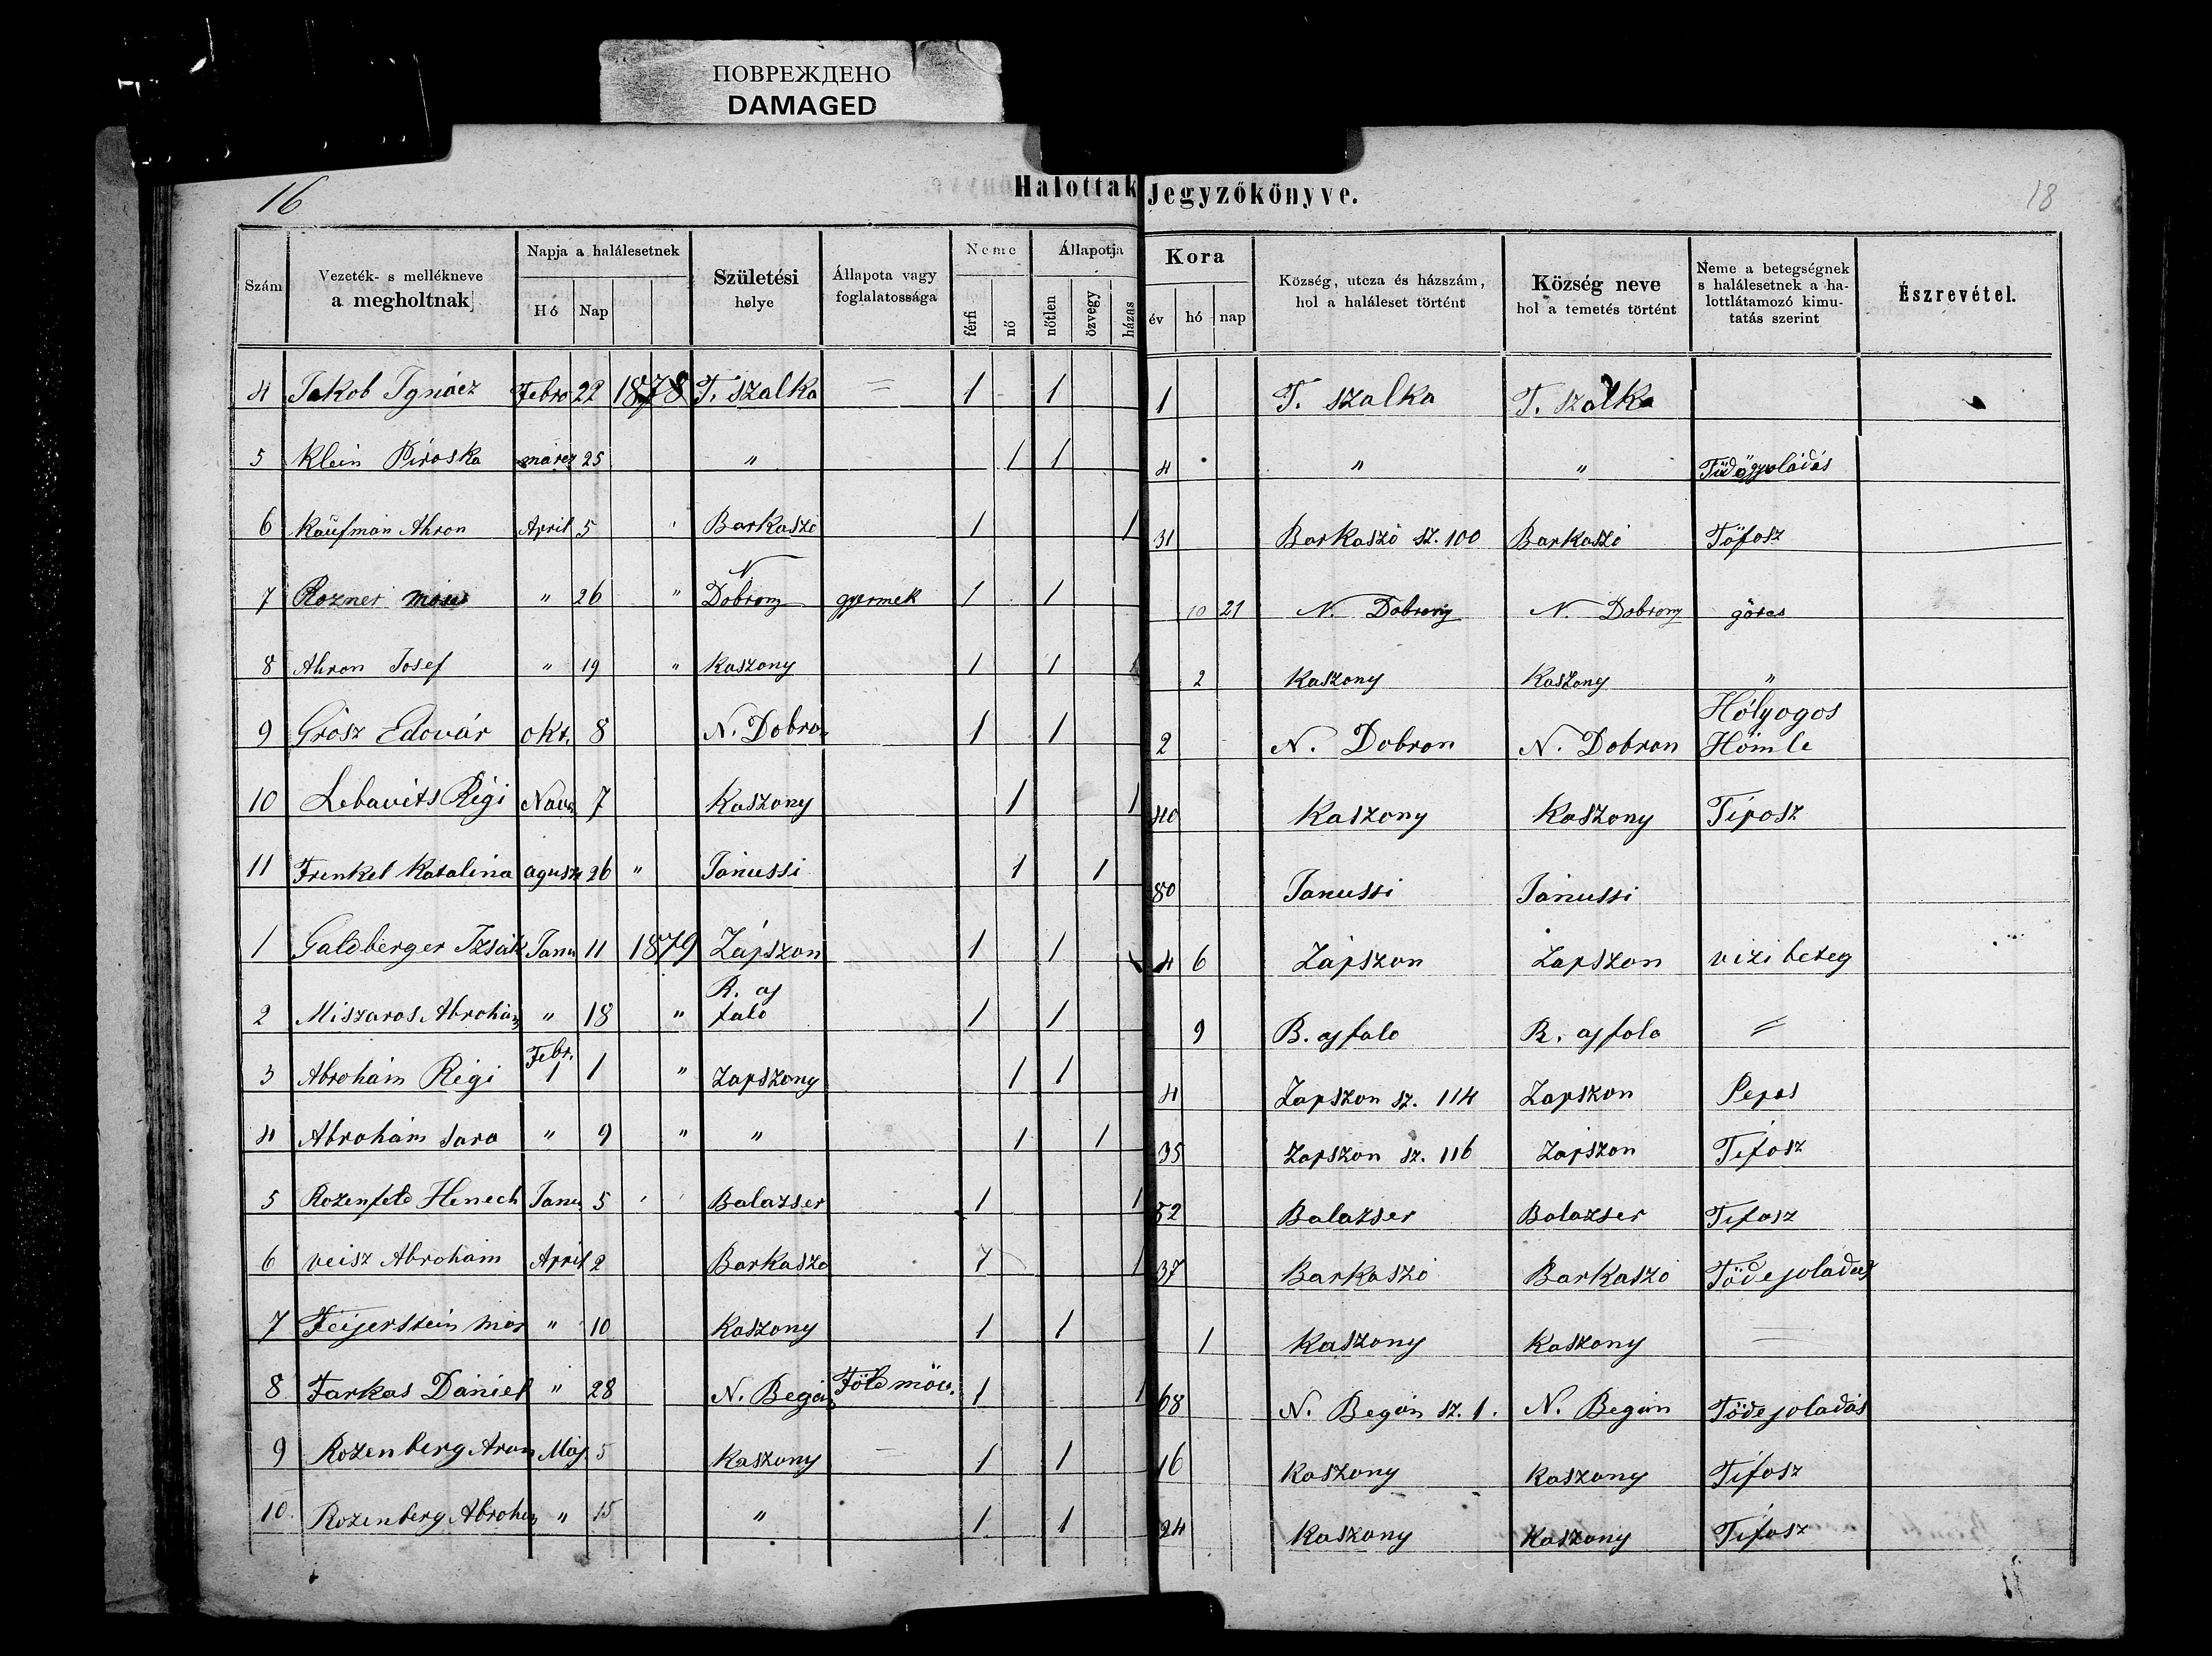 ПОВРЕЖДЕНО
DAMAGED
16
Halottak Jegyzőkönyve.
18
Szám
Vezeték- s mellékneve a megholtnak
Napja a halálesetnek
Hó Nap
Születési helye
Állapota vagy foglalatossága
Neme
férfi nő
Állapotja
nőtlen özvegy házas
Kora
év hó nap
Község, utcza és házszám, hol a haláleset történt
Község neve hol a temetés történt
Neme a betegségnek s halálesetnek a halottlátamozó kimutatás szerint
Észrevétel.
4 Jakob Ignácz Febro 22 1878 T. szalka = 1 1 1 T. szalka T. szalka
5 Klein Piroska márcz 25 " 1 1 4 " "
6 Kaufman Ahron April 5 " Barkaszó 1 1 31 Barkaszó sz. 100 Barkaszó Töfosz
7 Rozner " 26 " N Dobrony gyermek 1 1 10 21 N. Dobrony N. Dobrony görcs
8 Ahron Josef " 19 " Kaszony 1 1 2 Kaszony Kaszony "
9 Grosz Edovár okt. 8 N. Dobron 1 1 2 N. Dobron N. Dobron Hólyogos Höimle
10 Lebavits Régi Nov. 7 Kaszony 1 1 40 Kaszony Kaszony Tifosz
11 Frenkel Katalina agusz 26 " Jánussi 1 1 80 Janussi Jánussi
1 Galdberger Izsák Janu 11 1879 Zápszon 1 1 4 6 Zápszon Zapszon vizi beteg
2 Miszaros Abrohám " 18 " R. aj falo 1 1 9 B. aj falo R. aj fola =
3 Abrohám Régi Febr. 1 1 " Zapszony 1 1 4 Zapszon sz. 114 Zapszon Pepos
4 Abrohám Sara " 9 " " 1 1 35 Zapszon sz. 116 Zápszon Tifosz
5 Rozenfeld Henech Janu 5 " " Balazser 1 1 52 Balazser Balazser Tifosz
6 veisz Abrohám April 2 Barkaszo 1 1 37 Barkaszó Barkaszó Töde joladás
7 Feijerstein Mór " 10 Kaszony 1 1 1 Kaszony Kaszony =
8 Farkas Dániel " 28 N. Begán Föld möv. 1 1 68 N. Begán sz. 1. N. Begán Töde joladás
9 Rozenberg Aron Máj. 5 Kaszony 1 1 16 Kaszony Kaszony Tifosz
10. Rozenberg Abrohám " 15 " 1 1 24 Kaszony Kaszony Tifosz